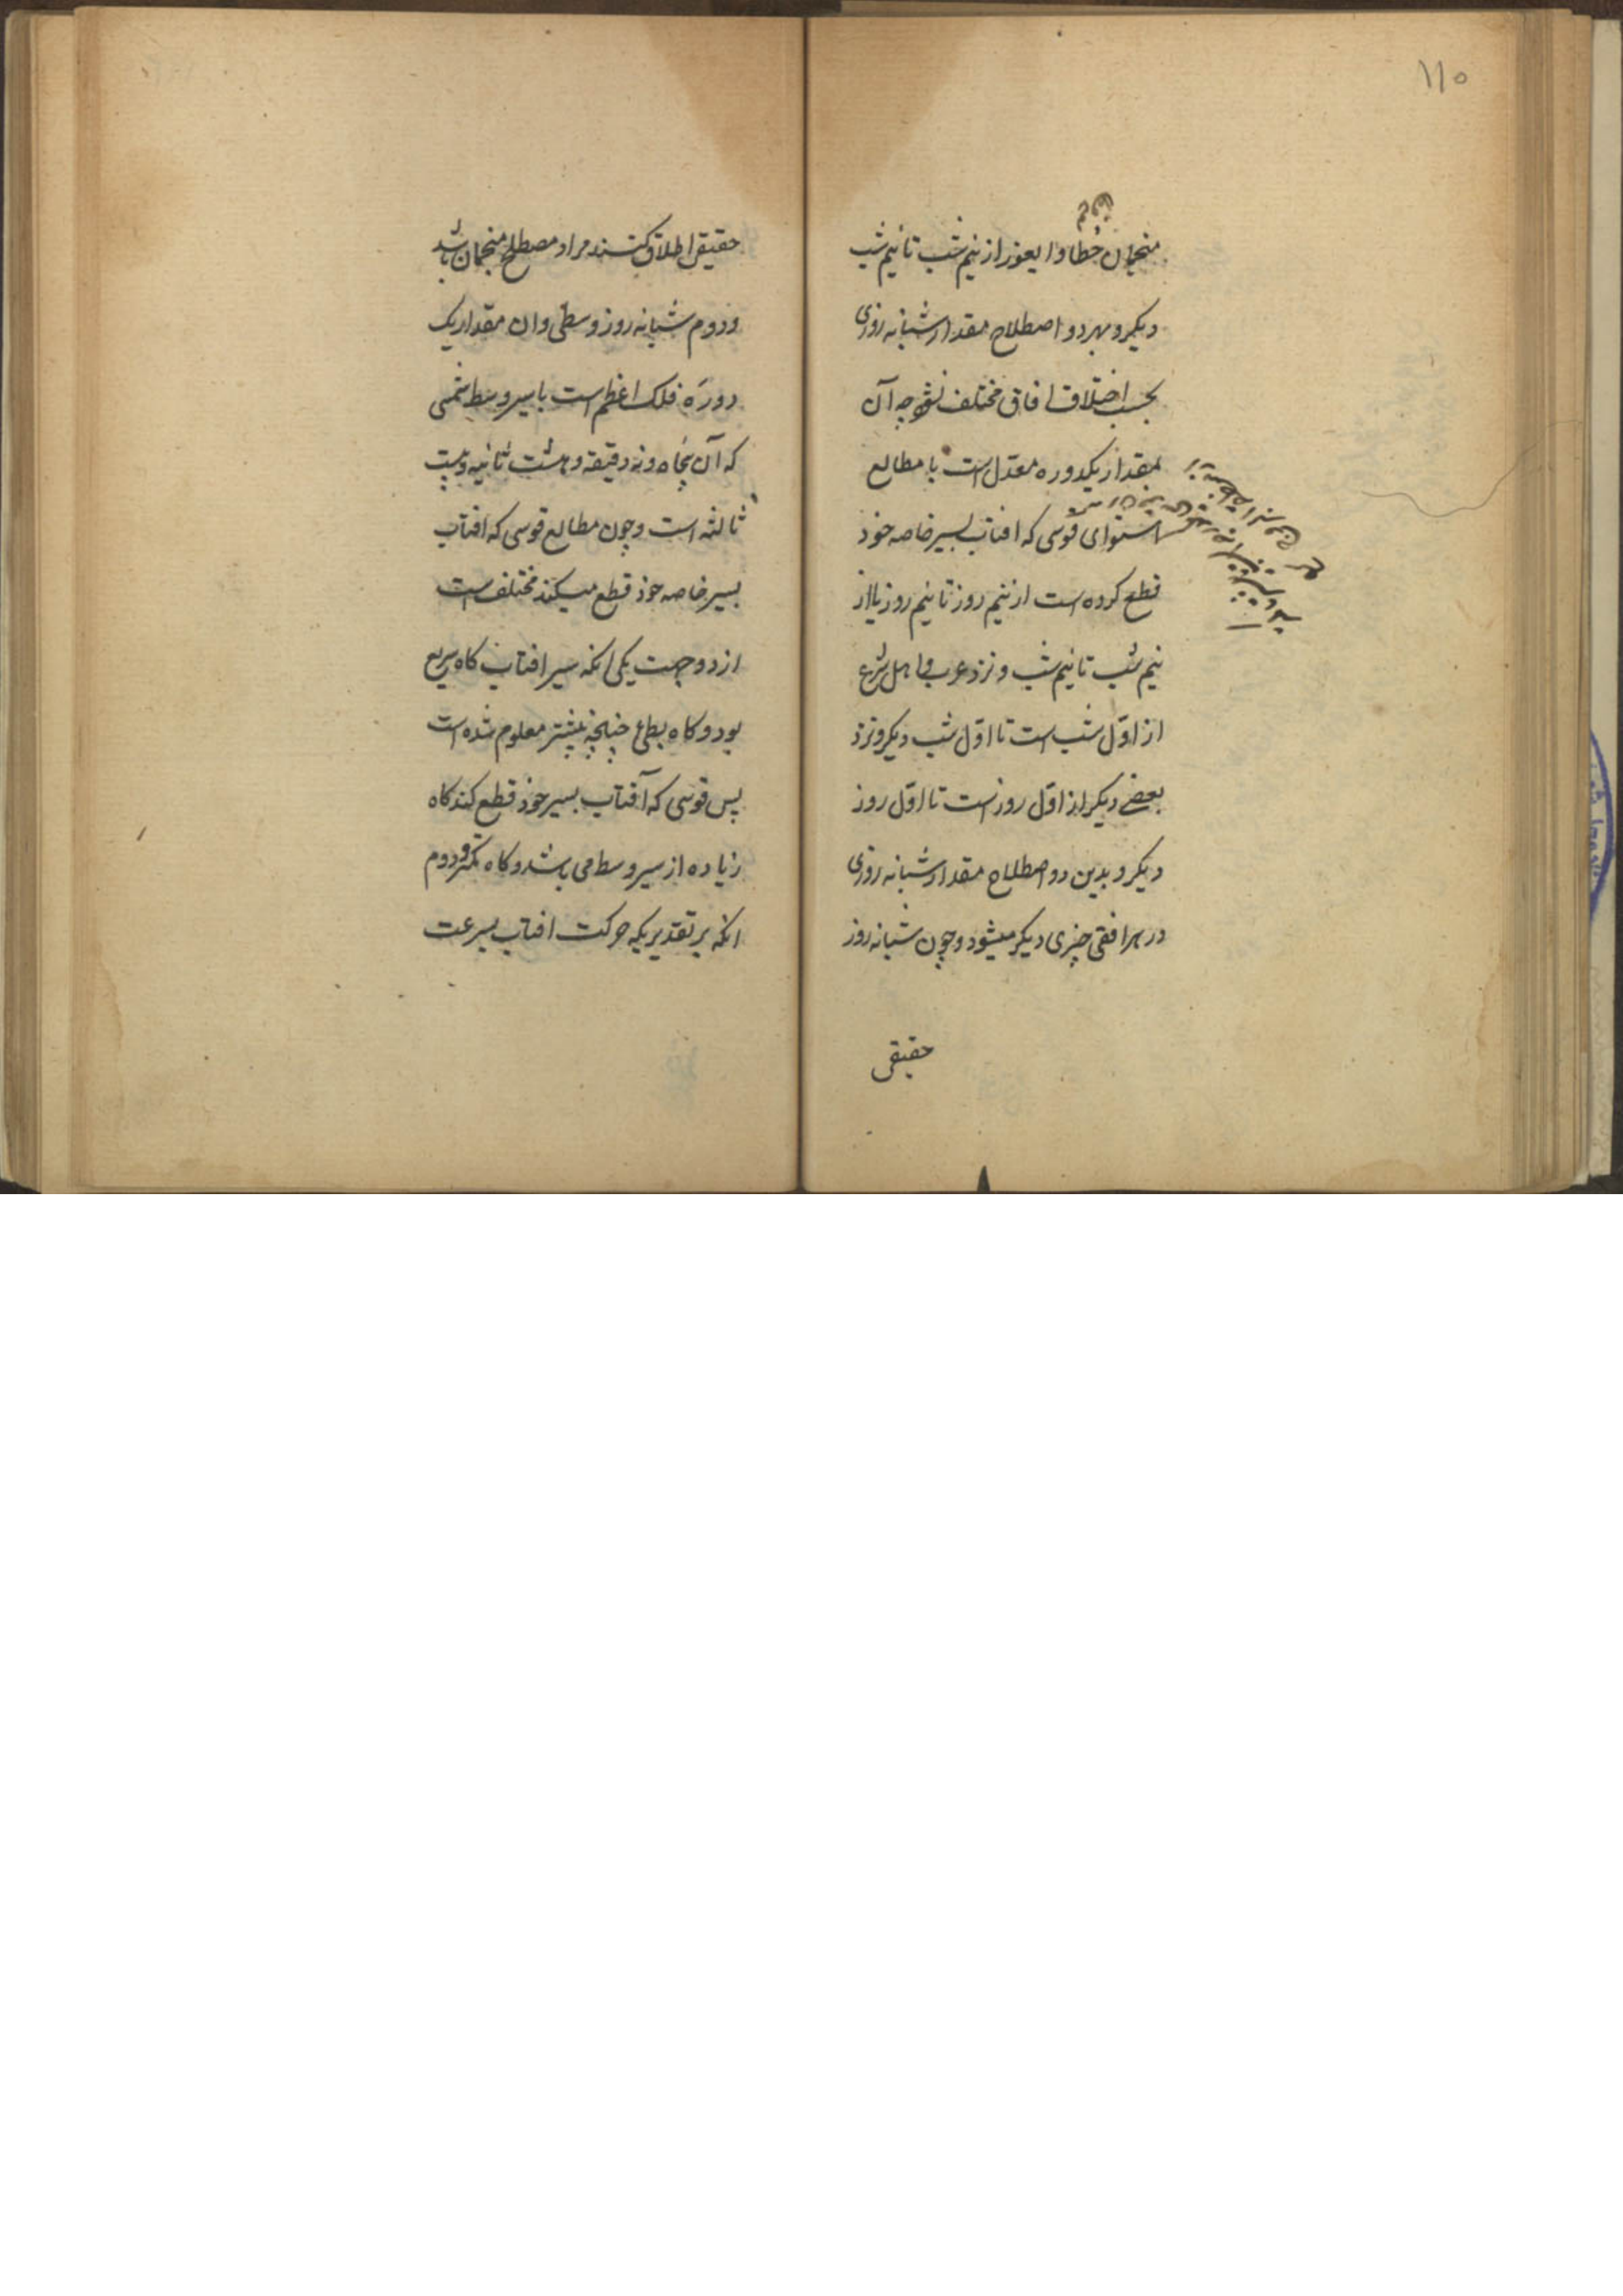 ۱۱۵
منجمان خطا و ایغور از نیم شب تا نیم شب
دیکر و بهر دو اصطلاح مقدار شبانه روزی
بحسب اختلاف افاق مختلف نشود چه آن
بمقدار یکدوره معدل است با مطالع
استوای قوسی که افتاب بسیر خاصه خود
قطع کرده است از نیم روز تا نیم روز یا از
نیم شب تا نیم شب و نزد عرب و اهل شرع
از اوّل شب است تا اوّل شب دیکر و نزد
بعضی دیکر از اوّل روز است تا اوّل روز
دیکر و بدین دو اصطلاح مقدار شبانه روزی
در هر افقی چیزی دیکر میشود و چون شبانه روز
حقیقی
حقیقی اطلاق کنند مراد مصطلح منجمان باشد
و دوم شبانه روز وسطی و ان مقدار یک
دورهٔ فلک اعظم است با سیر وسط شمس
که آن پنجاه و نه دقیقه و هشت ثانیه و بیست
ثالثه است و چون مطالع قوسی که افتاب
بسیر خاصه خود قطع میکند مختلف است
از دو جهت یکی انکه سیر افتاب کاه سریع
بود و کاه بطئ چنانچه پیشتر معلوم شده است
پس قوسی که آفتاب بسیر خود قطع کند کاه
زیاده از سیر وسط می باشد و کاه کمتر و دوم
انکه بر تقدیریکه حرکت افتاب بسرعت